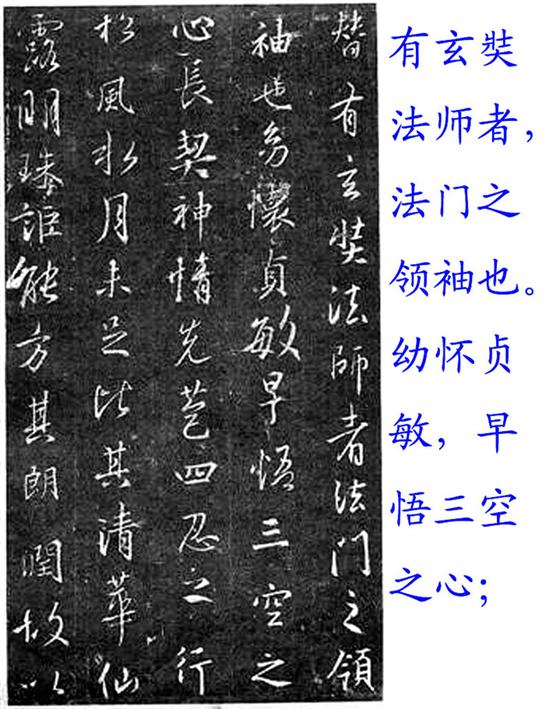 替有玄奘法師者法門之領
袖也幼懷貞敏早悟三空之
心長契神情先苞四忍之行
松風水月未足比其清華仙
露明珠詎能方其朗潤故以
有玄奘
法师者，
法门之
领袖也。
幼怀贞
敏，早
悟三空
之心；